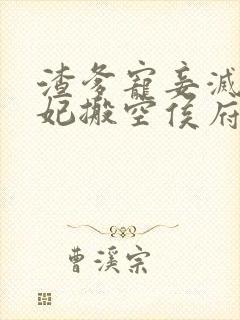 渣爹寵妾滅
妃搬空侯府
曹溪宗